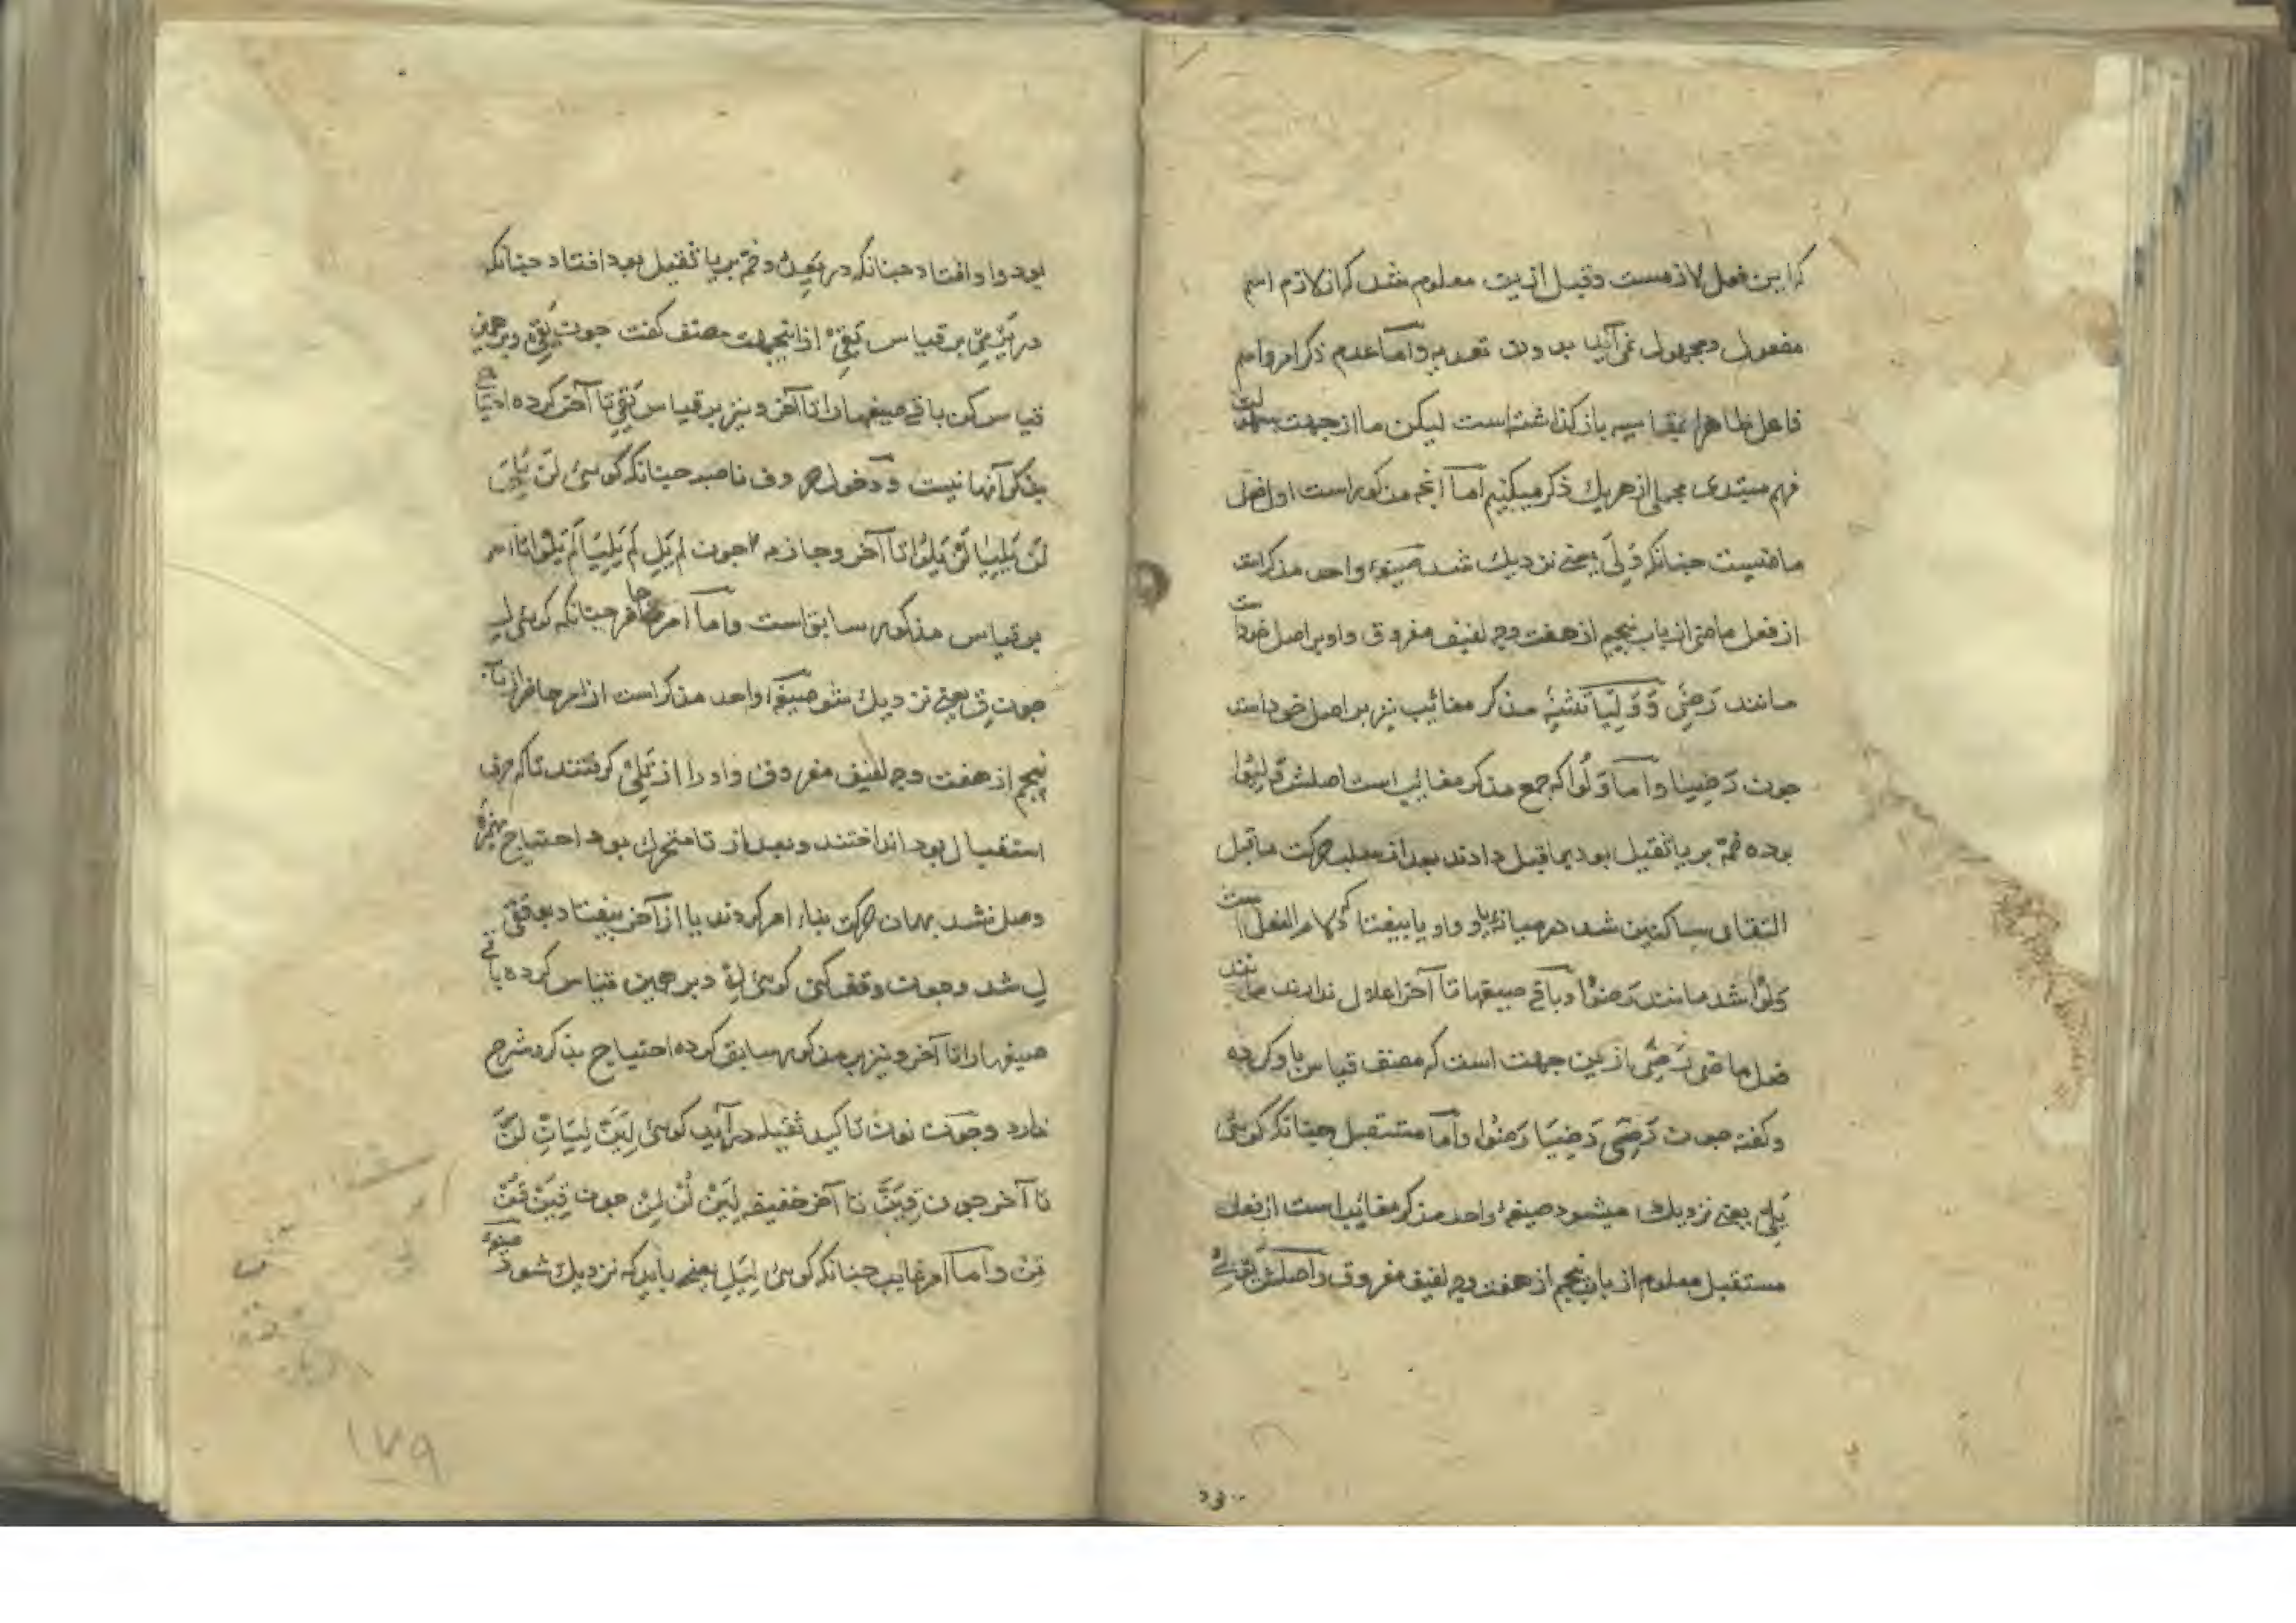 که این فعل لازمست و قبل ازین معلوم شد که از لازم اسم
مفعول و مجهول نمی‌آید بدون تعدیه و اما عدم ذکر امر و اسم
فاعل ظاهرا بمقایسه باز گذاشته است لیکن ما از جهت سهولت
فهم مبتدی مجملی از هر یک ذکر میکنیم اما آنچه مذکور است اول فعل
ماضیست چنانکه وَلِیَ یعنی نزدیک شد صیغهٔ واحد مذکر است
از فعل ماضی از باب پنجم از هفت وجه لفیف مفروق واو بر اصل خود است
مانند رَضِیَ وَ وَلِیَا تثنیهٔ مذکر مغائیب نیز بر اصل خود است
چون رَضِیَا و اما وَلُوا که جمع مذکر مغائیب است اصلش وَلِیُوا
بوده ضمّه بر یا ثقیل بود بماقبل دادند بعد از سلب حرکت ماقبل
التقای ساکنین شد در میانهٔ یا و واو یا بیفتاد که لام الفعل است
وَلُوْا شد مانند رَضُوْا و باقی صیغها تا آخر اعلال ندارند مانند
فعل ماضی رَضِیَ ازین جهت است که مصنف قیاس باو کرده
و کفته چون رَضِیَ رَضِیَا رَضُوْا و اما مستقبل چنانکه کوئی
یَلِی یعنی نزدیک میشود صیغهٔ واحد مذکر مغائیب است از فعل
مستقبل معلوم از باب پنجم از هفت وجه لفیف مفروق و اصلش یَوْلِیُ
بود واو افتاد چنانکه در یَعِدُ و ضمّه بر یا ثقیل بود افتاد چنانکه
در یَرْمِیْ بر قیاس یَقِیْ ازاینجهت مصنف کفت چون یَقِیْ و برهمین
قیاس کن باقی صیغها را تا آخر و نیز بر قیاس یَقِی تا آخر کرده احتیاج
بذکر آنها نیست و دخول حروف ناصبه چنانکه کوئی لَنْ یَلِیَ
لَنْ یَلِیَا لَنْ یَلُوْا تا آخر و جازمه چون لم یَلِ لَمْ یَلِیَا لَمْ یَلُوْا تا آخر
بر قیاس مذکور سابق است و اما امر حاضر چنانکه کوئی لِ
چون قِ یعنی نزدیک شو صیغهٔ واحد مذکر است از امر حاضر از باب
پنجم از هفت وجه لفیف مفروق و او را از تَلِیْ کرفتند تا که حرف
استقبال بود انداختند و بعد از تا متحرک بود احتیاج بهمزهٔ
وصل نشد بهمان حرکت بناء امر کردند یا از آخر بیفتاد بوقفی
لِ شد و چون وقف کنی کوئی لِهْ و بر همین قیاس کرده باقی
صیغها را تا آخر و نیز بر مذکور سابق کرده احتیاج بذکر و شرح
ندارد و چون نون تاکید ثقیله درآید کوئی لِیَنَّ لِیَانِّ لُنَّ
تا آخر چون قِیَنَّ تا آخر خفیفه لِیَنْ لُنْ لِنْ چون قِیَنْ قُنْ
قِنْ و اما امر غایب چنانکه کوئی لِیَلِ یعنی باید که نزدیک شود صیغهٔ
۱۷۹